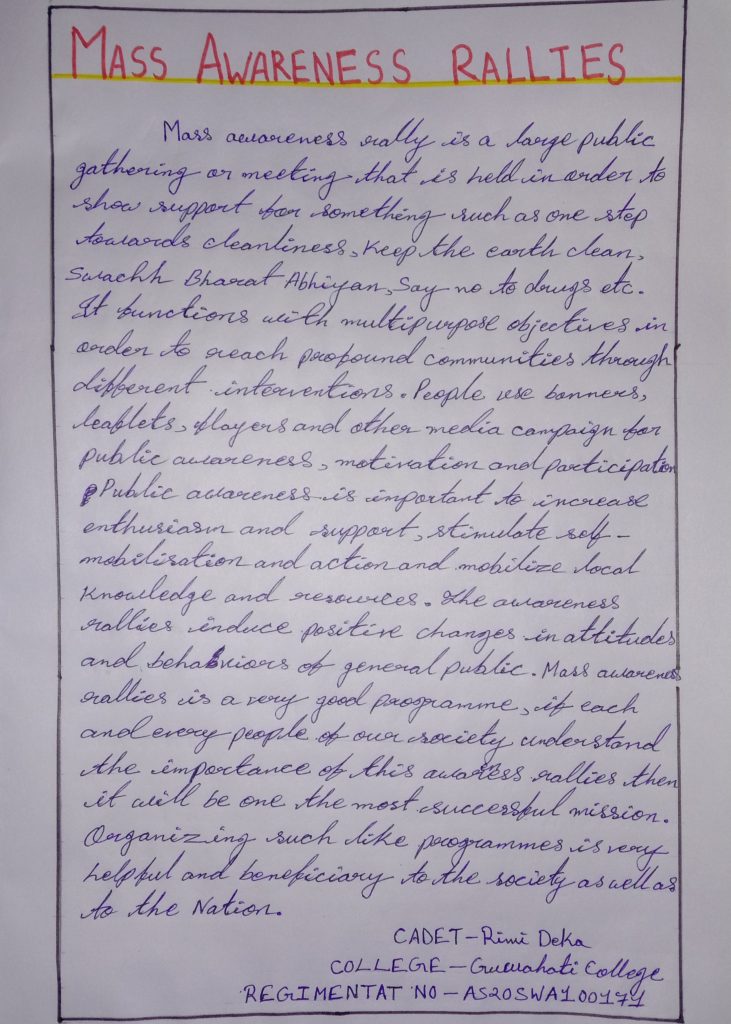 MASS AWARENESS RALLIES
Mass awareness rally is a large public
gathering or meeting that is held in order to
show support for something such as one step
towards cleanliness, Keep the earth clean,
Swachh Bharat Abhiyan, Say no to drugs etc.
It functions with multipurpose objectives in
order to reach profound communities through
different interventions. People use banners,
leaflets, flayers and other media campaign for
public awareness, motivation and participation
Public awareness is important to increase
enthusiasm and support, stimulate self-
mobilisation and action and mobilize local
knowledge and resources. The awareness
rallies induce positive changes in attitudes
and behaviors of general public. Mass awareness
rallies is a very good programme, if each
and every people of our society understand
the importance of this awarness rallies then
it will be one the most successful mission.
Organizing such like programmes is very
helpful and beneficiary to the society as well as
to the Nation.
CADET-Rimi Deka
COLLEGE-Guwahati College
REGIMENTAT NO-AS20SWA100171